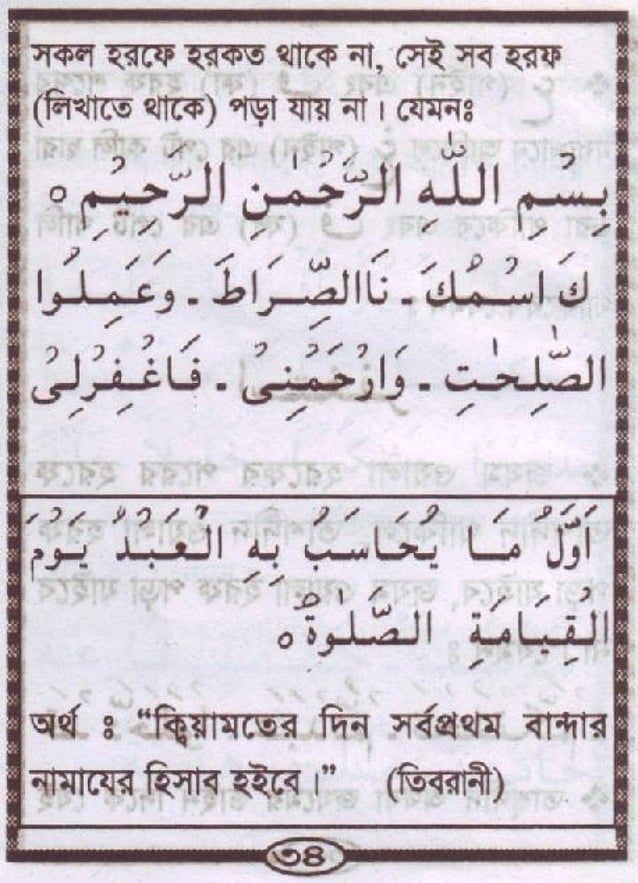 সকল হরফে হরকত থাকে না, সেই সব হরফ
(লিখাতে থাকে) পড়া যায় না। যেমনঃ
بِسْمِ اللّٰهِ الرَّحْمٰنِ الرَّحِيْمِ ○
كَ اسْمُكَ ـ نَاالصِّرَاطَ ـ وَعَمِلُوا
الصّٰلِحٰتِ ـ وَارْحَمْنِىْ ـ فَاغْفِرْلِىْ
اَوَّلُ مَا يُحَاسَبُ بِهِ الْعَبْدُ يَوْمَ
الْقِيَامَةِ الصَّلٰوةُ ○
অর্থ ঃ “ক্বিয়ামতের দিন সর্বপ্রথম বান্দার
নামাযের হিসাব হইবে।” (তিবরানী)
৩৪